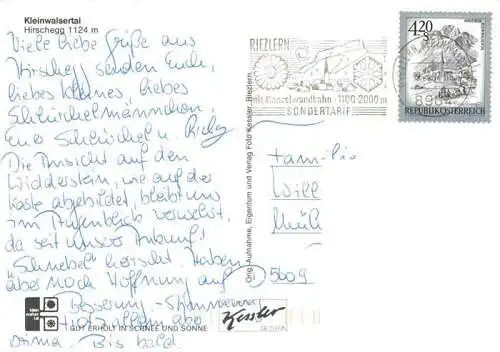 Kleinwalsertal
Hirschegg 1124 m
Viele liebe Grüße aus
Hirschegg senden Euch,
liebes kleines, liebes
Eure
Die Aussicht auf den
Widderstein, wie auf der
Karte abgebildet, bleibt uns
im verwehrt,
da seit unserer Ankunft
"Schnebel" herrscht. Haben
aber noch Hoffnung auf
Besserung - Stimmung
ist allem
prima. Bis bald.
GUT ERHOLT IN SCHNEE UND SONNE
Orig.-Aufnahme, Eigentum und Verlag Foto Kessler, Riezlern
Kessler
RIEZLERN
RIEZLERN
mit Kanzelwandbahn · 1100-2000m
SONDERTARIF
4.20
S
REPUBLIK ÖSTERREICH
Fam.
Will
Mühl
5609